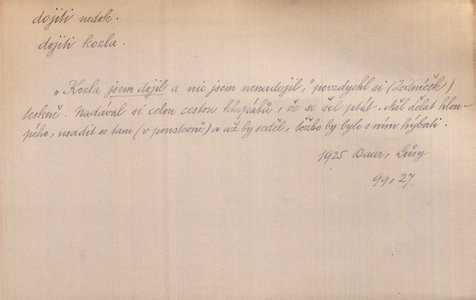 dojiti nedok.
dojiti kozla.
„Kozla jsem dojil a nic jsem nenadojil,“ povzdychl si (Zedníček)
teskně. Nadával si celou cestou hlupáků, že se šel ptát. Měl dělat hlou-
pého, usadit se tam (v poustevně) a až by seděl, těžko by bylo s ním hýbati.
1925 Baar, Lůsy
99, 27.